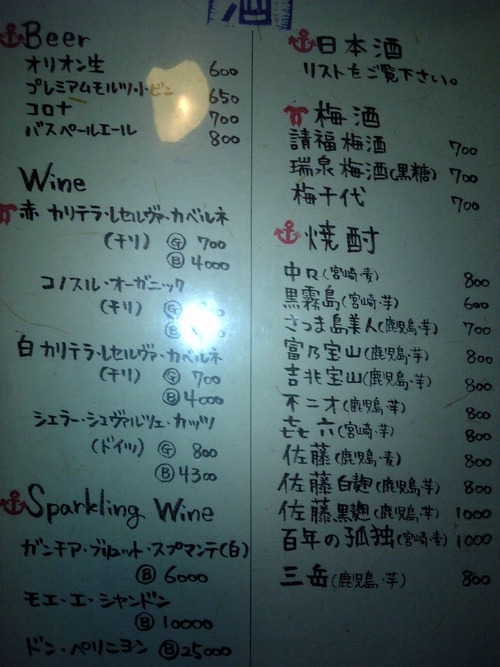 酒
Beer
オリオン生 600
プレミアムモルツ・小ビン 650
コロナ 700
バスペールエール 800
Wine
赤 カリテラ・レセルヴァ・カベルネ
(チリ) G 700
B 4000
コノスル・オーガニック
(チリ) G
白 カリテラ・レセルヴァ・カベルネ
(チリ) G 700
B 4000
シェラー・シュヴァルツェ・カッツ
(ドイツ) G 800
B 4300
Sparkling Wine
ガンチア・ブリュット・スプマンテ(白)
B 6000
モエ・エ・シャンドン
B 10000
ドン・ペリニヨン B 25000
日本酒
リストをご覧下さい。
梅酒
請福梅酒 700
瑞泉梅酒(黒糖) 700
梅干代 700
焼酎
中々(宮崎・麦) 800
黒霧島(宮崎・芋) 600
さつま島美人(鹿児島・芋) 700
富乃宝山(鹿児島・芋) 800
吉兆宝山(鹿児島・芋) 800
不二才(鹿児島・芋) 800
㐂六(宮崎・芋) 800
佐藤(鹿児島・麦) 800
佐藤 白麹(鹿児島・芋) 800
佐藤 黒麹(鹿児島・芋) 1000
百年の孤独(宮崎・麦) 1000
三岳(鹿児島・芋) 800